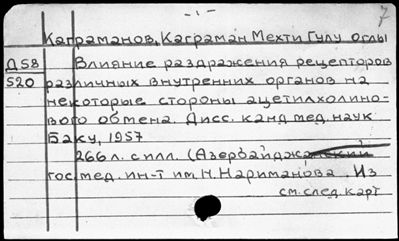 - 1 - 7
Каграманов, Каграман Мехти Гулу оглы
Д58 Влияние раздражения рецепторов
520 различных внутренних органов на
некоторые стороны ацетилхолино-
вого обмена. Дисс. канд мед. наук
Баку, 1957
266 л. с илл. (Азербайджанский
гос. мед. ин-т им. Н. Нариманова. Из
см. след. карт